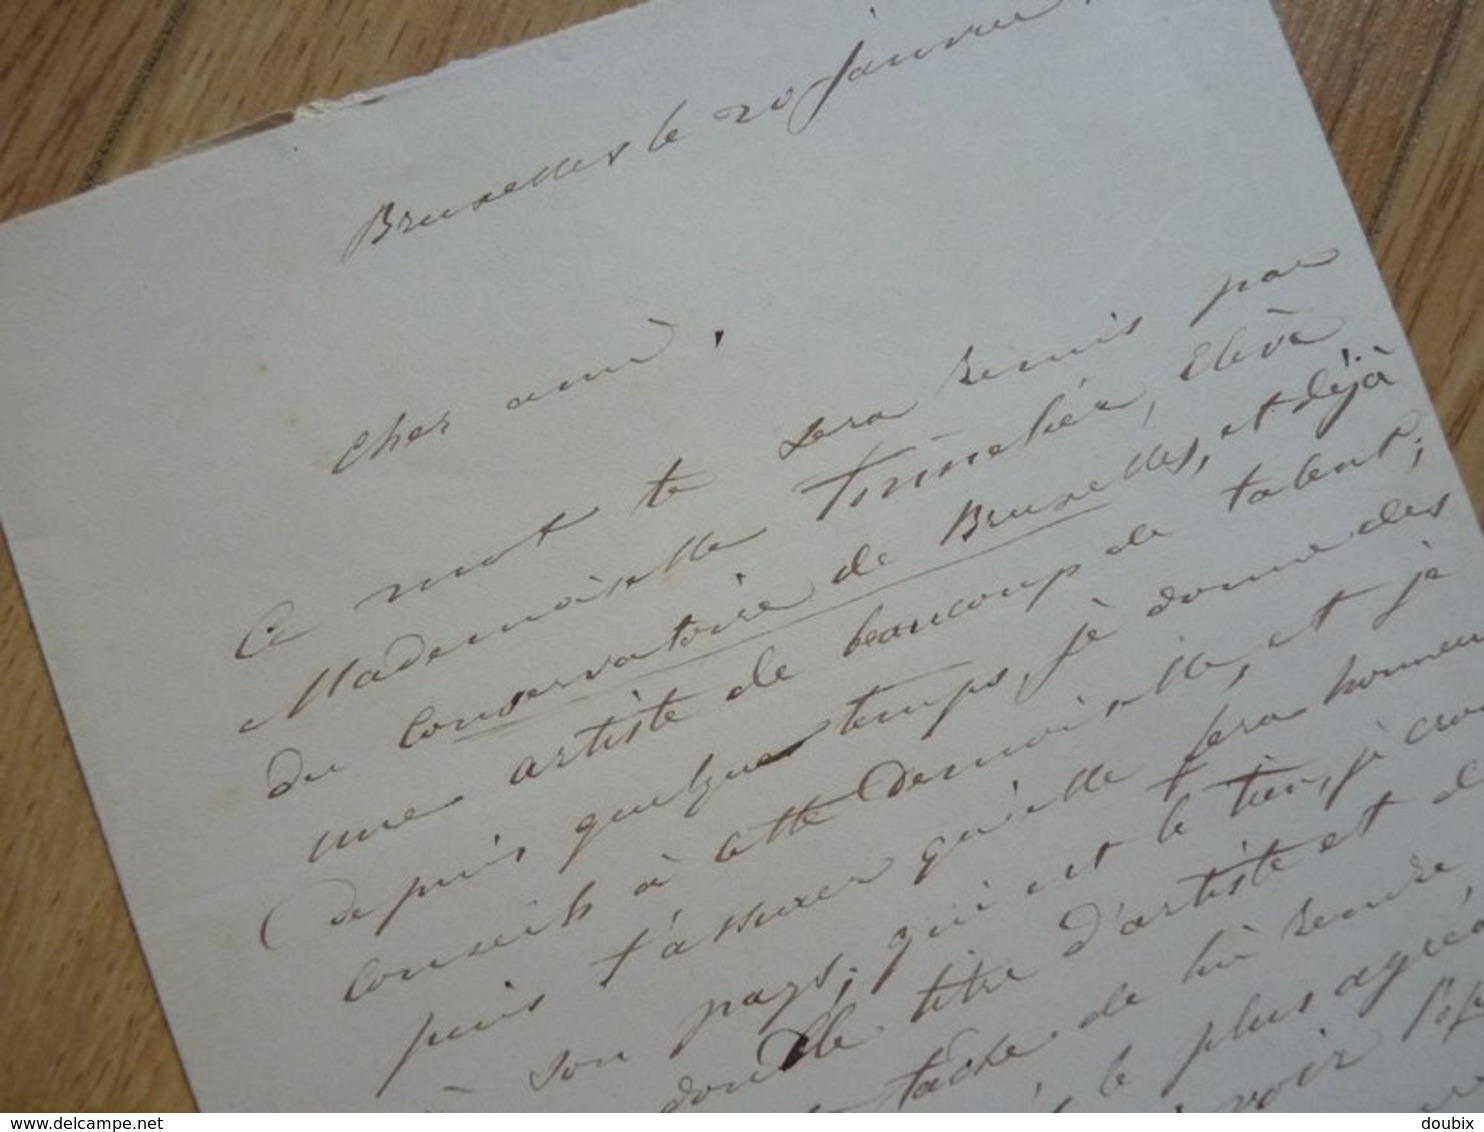 Bruxelles le 20 janvier
Cher ami,
Ce mot te sera remis par
Mademoiselle élève
du Conservatoire de Bruxelles, et déjà
une artiste de beaucoup de talent;
Depuis quelque temps, je donne des
conseils à cette Demoiselle, et je
puis t'assurer qu'elle fera honneur
à son pays, qui est le tien, je
double titre d'artiste et
tâche de lui rendre
le plus
voir
© www.delcampe.net
doubix